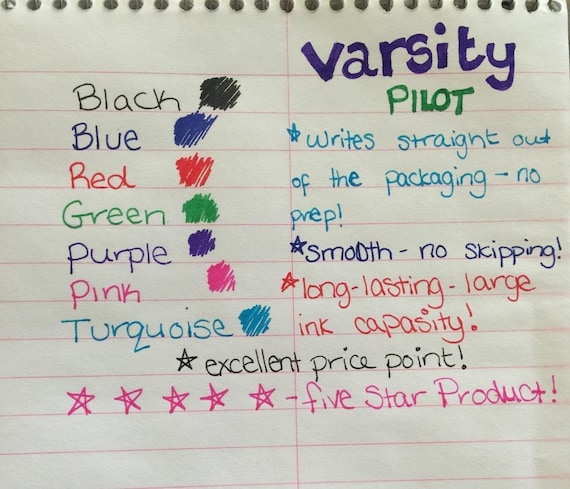 Varsity
PILOT
Black
Blue
Red
Green
Purple
Pink
Turquoise
*Writes straight out
of the packaging - no
prep!
*smooth - no skipping!
*long-lasting - large
ink capasity!
*excellent price point!
- five Star Product!